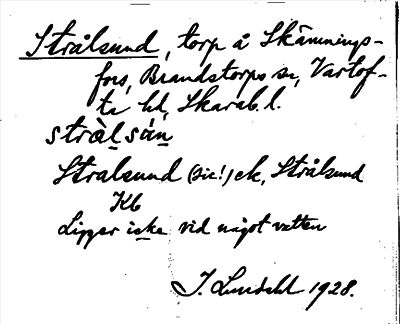 Strålsund, torp å Skämnings-
fors, Brandstorps sn, Vartof-
ta hd, Skarab. l.
strålsún
Stralsund (sic!) ek, Strålsund
Kb
Ligger icke vid något vatten
J. Lundahl 1928.